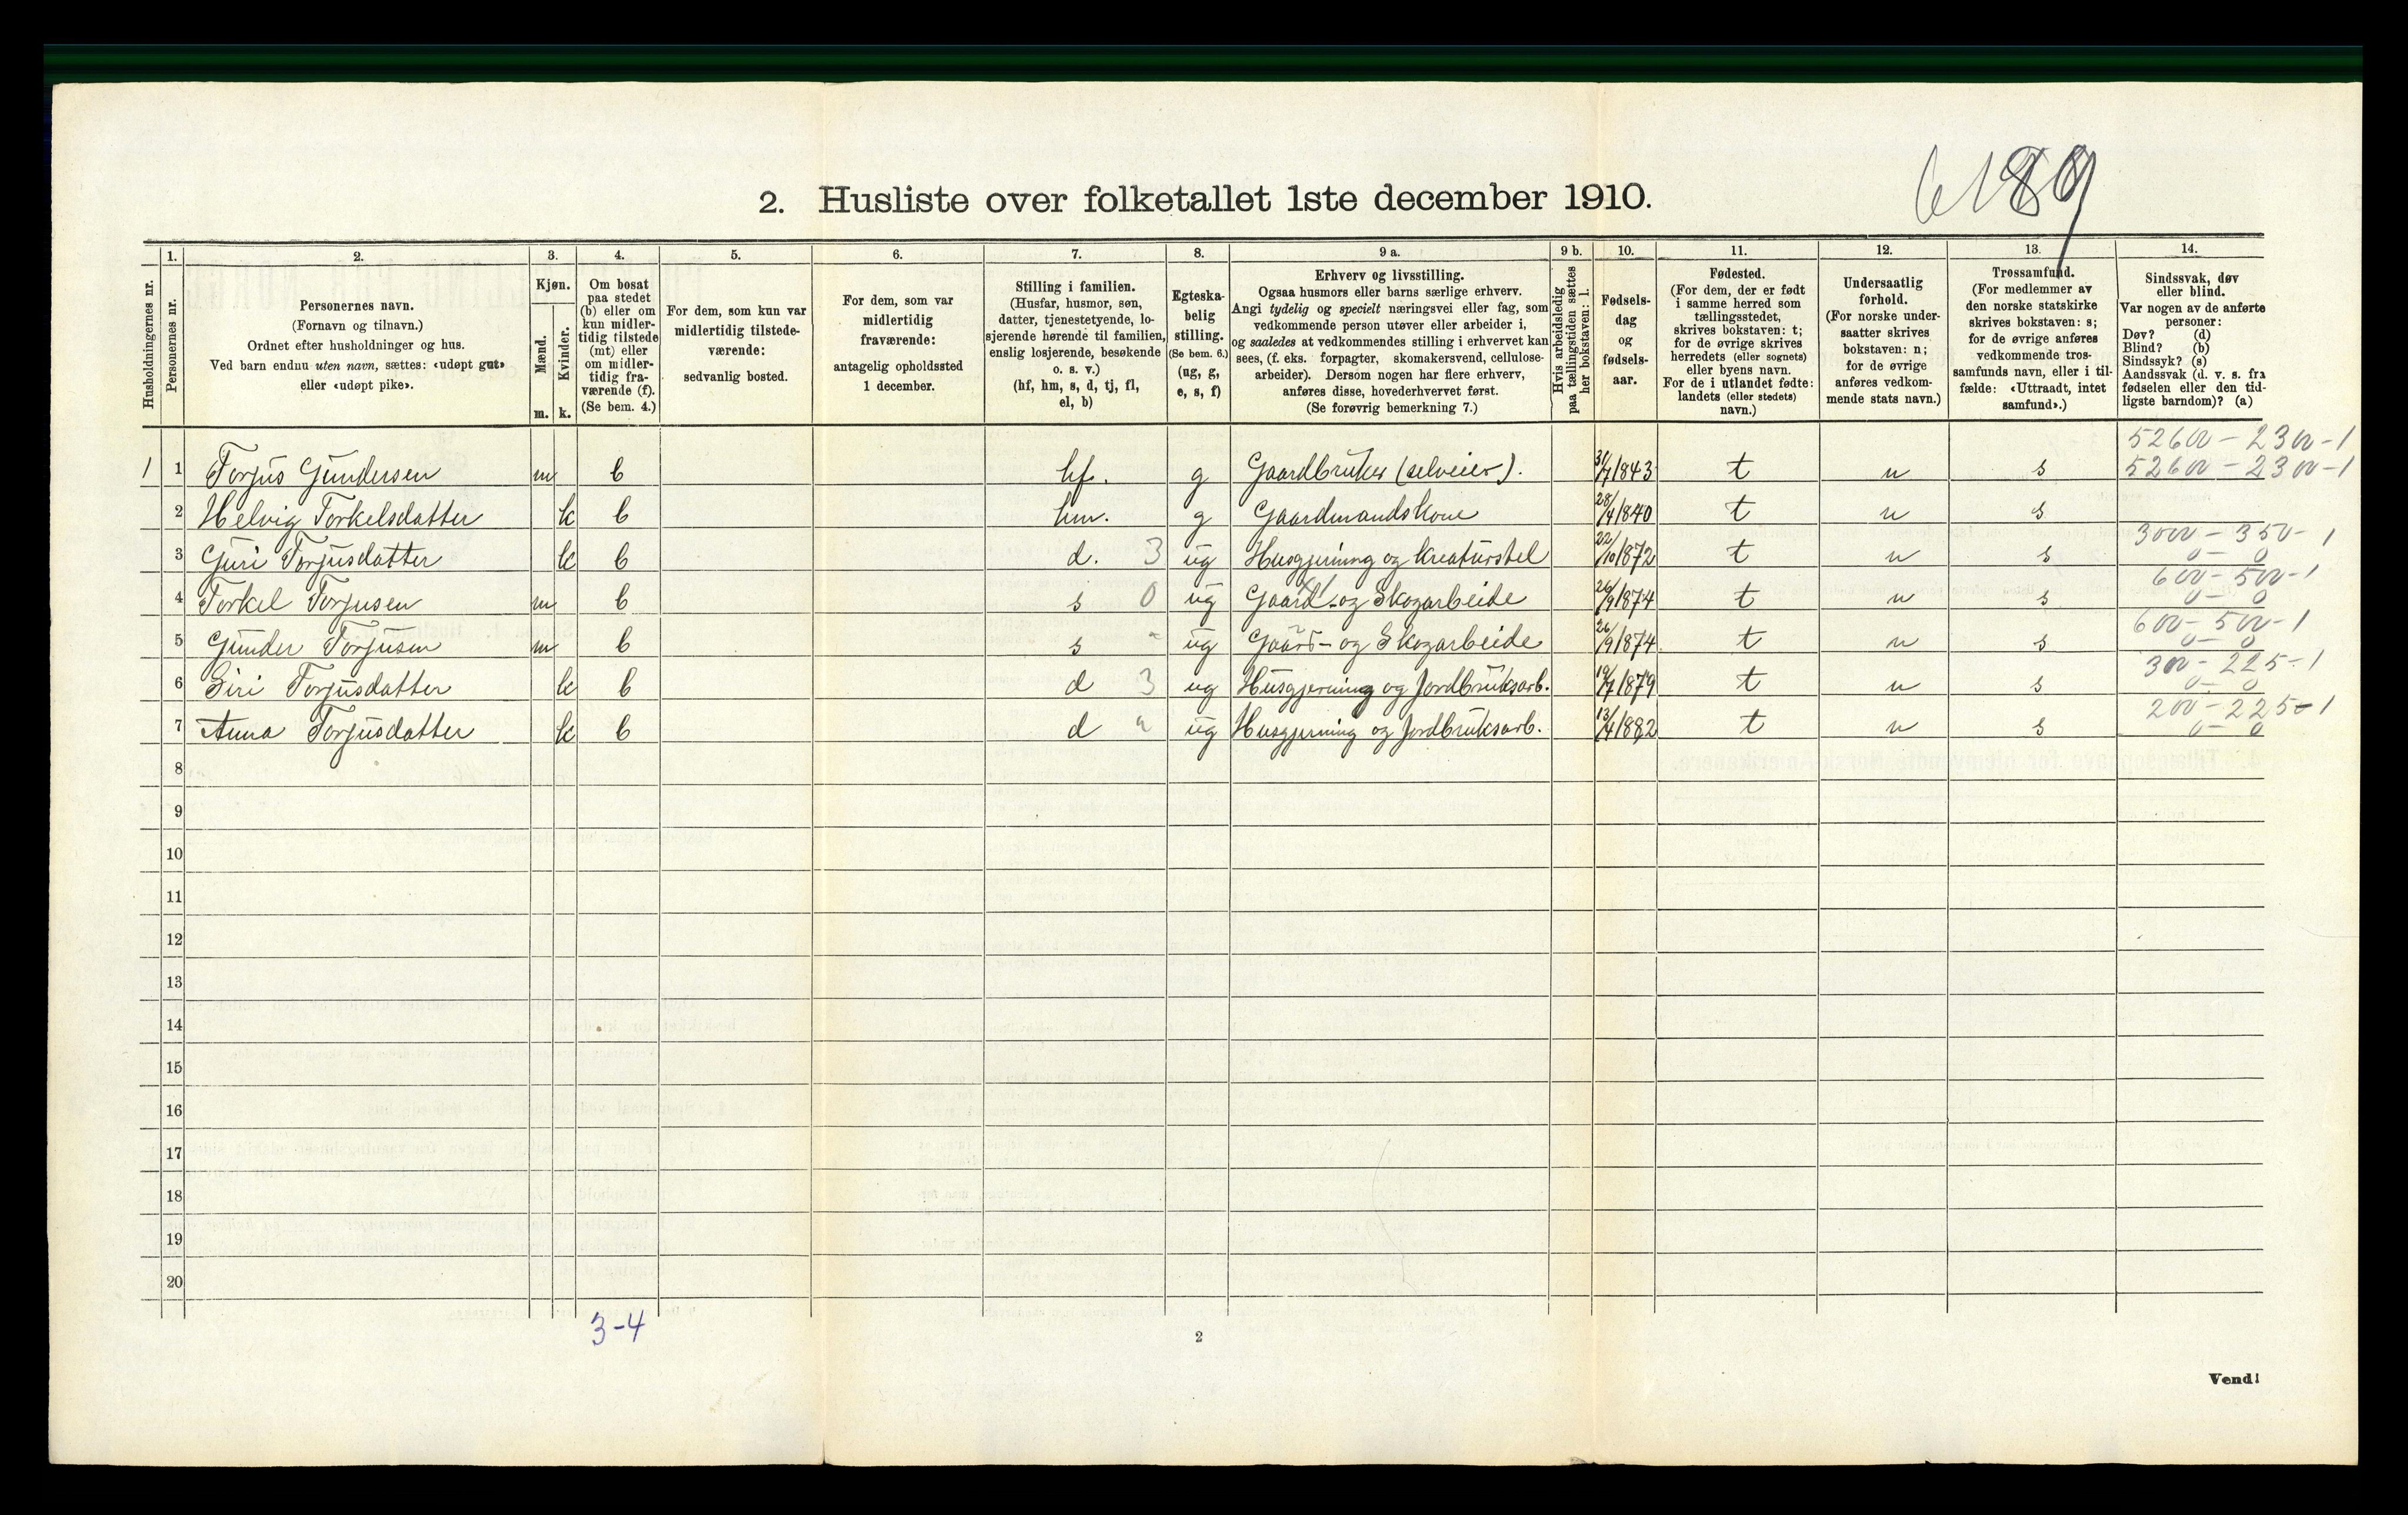 6189
2. Husliste over folketallet 1ste december 1910.
Husholdningernes nr.
1.
Personernes nr.
2.
Personernes navn.
(Fornavn og tilnavn.)
Ordnet efter husholdninger og hus.
Ved barn endnu uten navn, sættes: «udøpt gut»
eller «udøpt pike».
3.
Kjøn.
Mænd. Kvinder.
m. k.
4.
Om bosat
paa stedet
(b) eller om
kun midler-
tidig tilstede
(mt) eller
om midler-
tidig fra-
værende (f).
(Se bem. 4.)
5.
For dem, som kun var
midlertidig tilstede-
værende:
sedvanlig bosted.
6.
For dem, som var
midlertidig
fraværende:
antagelig opholdssted
1 december.
7.
Stilling i familien.
(Husfar, husmor, søn,
datter, tjenestetyende, lo-
sjerende hørende til familien,
enslig losjerende, besøkende
o. s. v.)
(hf, hm, s, d, tj, fl,
el, b)
8.
Egteska-
belig
stilling.
(Se bem. 6.)
(ug, g,
e, s, f)
9 a.
Erhverv og livsstilling.
Ogsaa husmors eller barns særlige erhverv.
Angi tydelig og specielt næringsvei eller fag, som
vedkommende person utøver eller arbeider i,
og saaledes at vedkommendes stilling i erhvervet kan
sees, (f. eks. forpagter, skomakersvend, cellulose-
arbeider). Dersom nogen har flere erhverv,
anføres disse, hovederhvervet først.
(Se forøvrig bemerkning 7.)
9 b.
Hvis arbeidsledig
paa tællingstiden sættes
her bokstaven: l.
10.
Fødsels-
dag
og
fødsels-
aar.
11.
Fødested.
(For dem, der er født
i samme herred som
tællingsstedet,
skrives bokstaven: t;
for de øvrige skrives
herredets (eller sognets)
eller byens navn.
For de i utlandet fødte:
landets (eller stedets)
navn.)
12.
Undersaatlig
forhold.
(For norske under-
saatter skrives
bokstaven: n;
for de øvrige
anføres vedkom-
mende stats navn.)
13.
Trossamfund.
(For medlemmer av
den norske statskirke
skrives bokstaven: s;
for de øvrige anføres
vedkommende tros-
samfunds navn, eller i til-
fælde: «Uttraadt, intet
samfund».)
14.
Sindssvak, døv
eller blind.
Var nogen av de anførte
personer:
Døv? (d)
Blind? (b)
Sindssyk? (s)
Aandssvak (d. v. s. fra
fødselen eller den tid-
ligste barndom)? (a)
52600 - 2300 - 1
1 1 Torjus Gundersen m b hf. g Gaardbruker (selveier). 31/7 1843 t n s 52600 - 2300 - 1
2 Helvig Torkelsdatter k b hm. g Gaardmandskone 28/4 1840 t n s
3000 - 350 - 1
3 Guri Torjusdatter k b d. 3 ug Husgjerning og kreaturstel 22/10 1872 t n s 0 - 0
600 - 500 - 1
4 Torkel Torjusen m b s 0 ug Gaard- og Skogarbeide 26/9 1874 t n s 0 - 0
600 - 500 - 1
5 Gunder Torjusen m b s " ug Gaard- og Skogarbeide 26/9 1874 t n s 0 - 0
300 - 225 - 1
6 Siri Torjusdatter k b d 3 ug Husgjerning og Jordbruksarb. 19/7 1879 t n s 0 - 0
200 - 225 - 1
7 Anna Torjusdatter k b d " ug Husgjerning og Jordbruksarb. 13/4 1882 t n s 0 - 0
8
9
10
11
12
13
14
15
16
17
18
19
20
3-4
2
Vend!